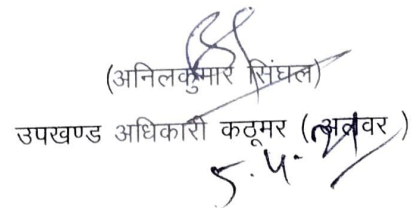 (अनिलकुमार सिंघल)
उपखण्ड अधिकारी कठूमर (अलवर )
5.4.